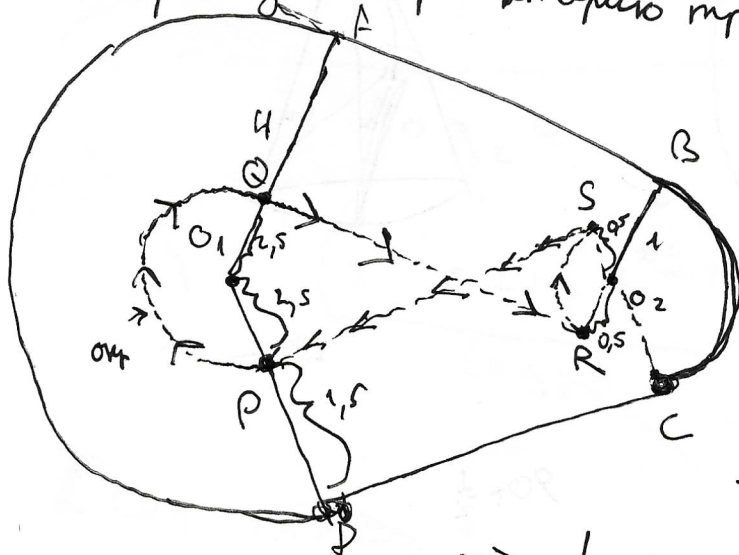 A
4
B
Q
S
0,5
O₁
2,5
1
2,5
O₂
R
0,5
P
1,5
C
D